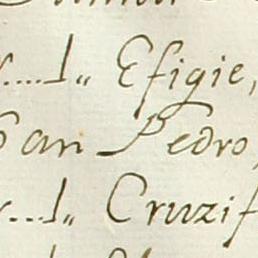 ....1,, Efigie,
San Pedro,
....1,, Cruzif